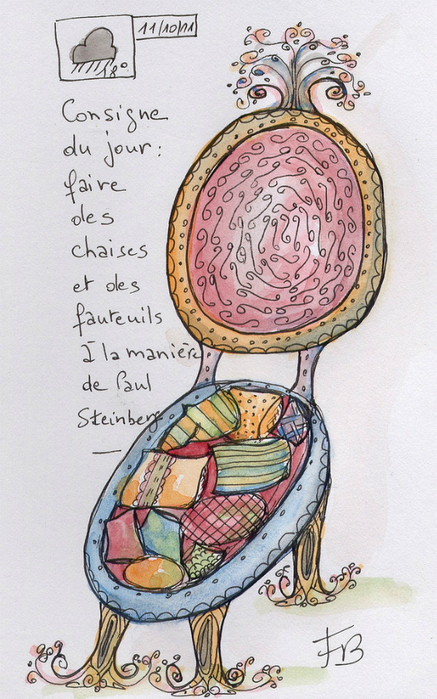 11/10/11
18°
Consigne
du jour :
faire
des
chaises
et des
fauteuils
à la manière
de Paul
Steinberg
FB